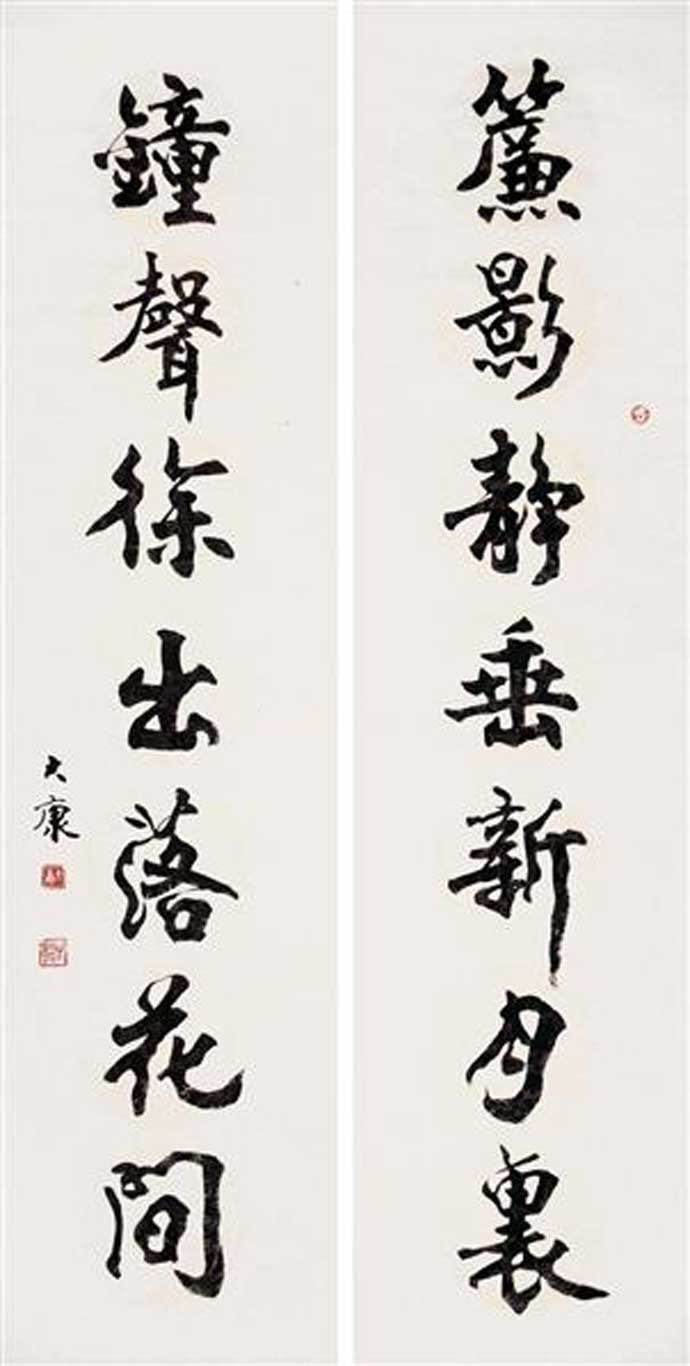 簾影靜垂新月裏
鐘聲徐出落花間
大康